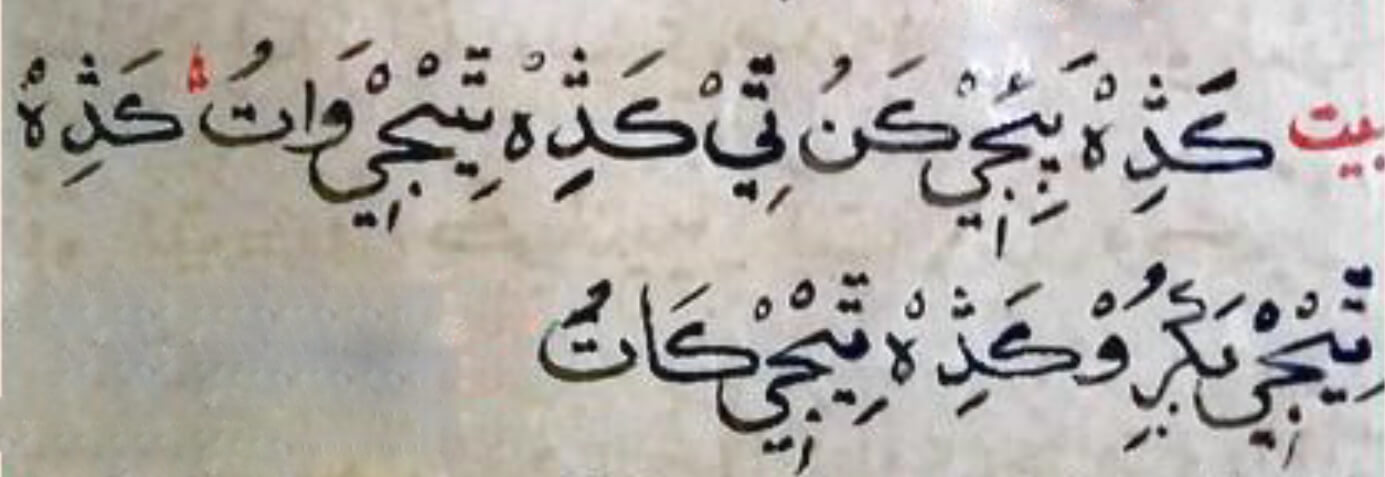 بيت كَڎِهْ پَئِجِيْ كَنُ تِيْ كَڎِهْ تِيْجِيْ وَاتُ كَڎِهْ
تِيْجِيْ پَکِرُوْ كَڎِهْ تِيْجِيْ كَاتُ